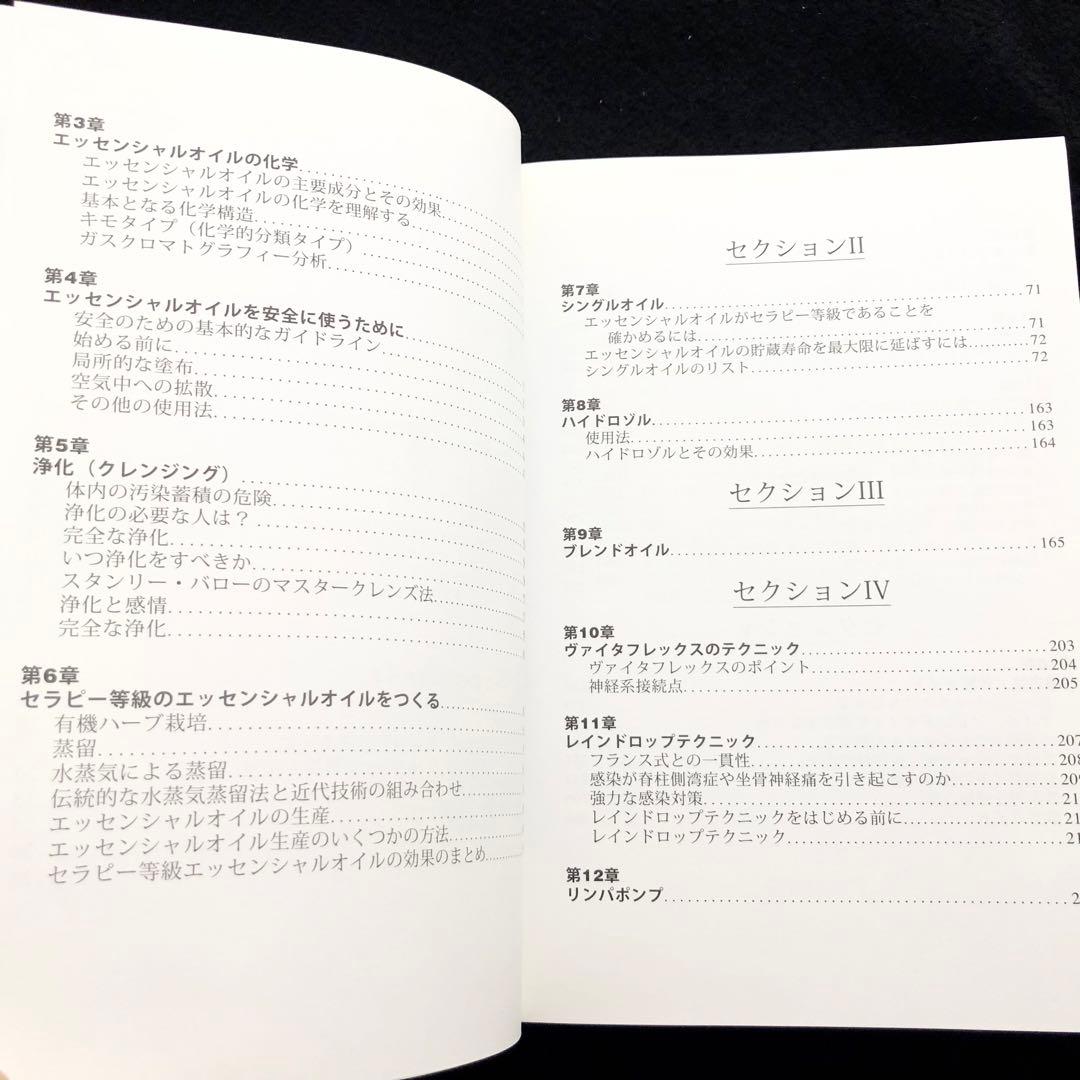 第3章
エッセンシャルオイルの化学
エッセンシャルオイルの主要成分とその効果
エッセンシャルオイルの化学を理解する
基本となる化学構造
キモタイプ（化学的分類タイプ）
ガスクロマトグラフィー分析
第4章
エッセンシャルオイルを安全に使うために
安全のための基本的なガイドライン
始める前に
局所的な塗布
空気中への拡散
その他の使用法
第5章
浄化（クレンジング）
体内の汚染蓄積の危険
浄化の必要な人は？
完全な浄化
いつ浄化をすべきか
スタンリー・バローのマスタークレンズ法
浄化と感情
完全な浄化
第6章
セラピー等級のエッセンシャルオイルをつくる
有機ハーブ栽培
蒸留
水蒸気による蒸留
伝統的な水蒸気蒸留法と近代技術の組み合わせ
エッセンシャルオイルの生産
エッセンシャルオイル生産のいくつかの方法
セラピー等級エッセンシャルオイルの効果のまとめ
セクションII
第7章
シングルオイル 71
エッセンシャルオイルがセラピー等級であることを
確かめるには 71
エッセンシャルオイルの貯蔵寿命を最大限に延ばすには 72
シングルオイルのリスト 72
第8章
ハイドロゾル 163
使用法 163
ハイドロゾルとその効果 164
セクションIII
第9章
ブレンドオイル 165
セクションIV
第10章
ヴァイタフレックスのテクニック 203
ヴァイタフレックスのポイント 204
神経系接続点 205
第11章
レインドロップテクニック 207
フランス式との一貫性 208
感染が脊柱側湾症や坐骨神経痛を引き起こすのか 209
強力な感染対策 21
レインドロップテクニックをはじめる前に 21
レインドロップテクニック 21
第12章
リンパポンプ 2